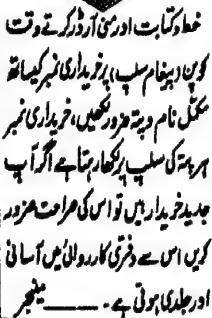 خط و کتابت اور منی آرڈر کرتے وقت
کوپن (پیغام سلپ) پر خریداری نمبر کیساتھ
مکمل نام و پتہ ضرور لکھیں، خریداری نمبر
ہر پتہ کی سلپ پر لکھا رہتا ہے اگر آپ
جدید خریدار ہیں تو اس کی صراحت ضرور
کریں اس سے دفتری کارروائی میں آسانی
اور جلدی ہوتی ہے۔ ــــــ مینجر